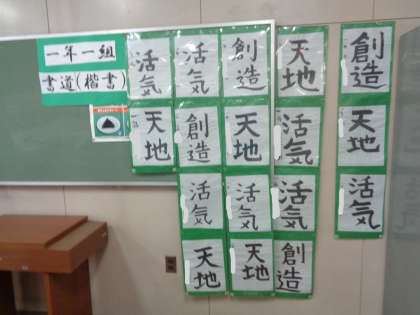 一年一組
書道(楷書)
活気
活気
創造
天地
創造
天地
創造
天地
活気
天地
活気
活気
活気
活気
天地
天地
創造